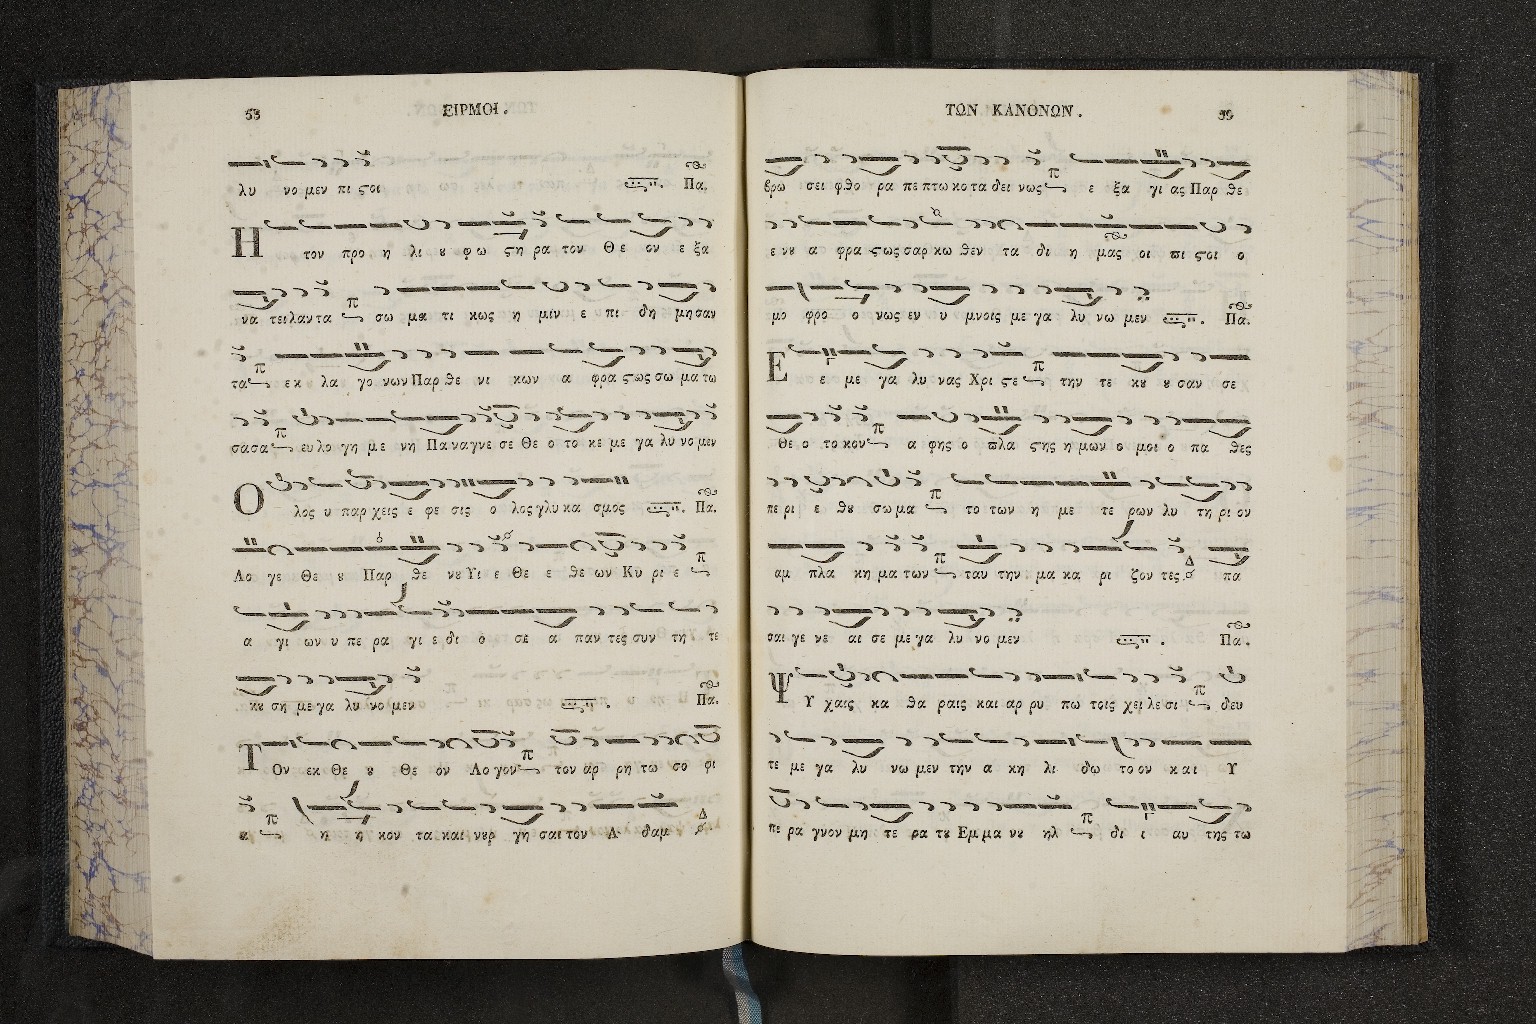 ΕΙΡΜΟΙ.
λυ νο μεν πι ϛοι Πα.
Η τον προ η λι ȣ φω ϛη ρα τον Θε ον ε ξα
να τει λαν τα σω μα τι κως η μιν ε πι δη μη σαν
τα εκ λα γο νων Παρ θε νι κων α φρα ϛως σω μα τω
σα σα ευ λο γη με νη Πα να γνε σε Θε ο το κε με γα λυ νο μεν
Ο λος υ παρ χεις ε φε σις ο λος γλυ κα σμος Πα.
Λο γε Θε ȣ Παρ θε νȣ Υι ε Θε ε θε ων Κυ ρι ε
α γι ων υ πε ρα γι ε δι ο σε α παν τες συν τη τε
κȣ ση με γα λυ νο μεν Πα.
Τ Ον εκ Θε ȣ Θε ον Λο γον τον αρ ρη τω σο φι
α η η κον τα και νȣρ γη σαι τον Α δαμ
ΤΩΝ ΚΑΝΟΝΩΝ. 59
βρω σει φθο ρα πε πτω κο τα δει νως ε ξα γι ας Παρ θε
ε νȣ α φρα ϛως σαρ κω θεν τα δι η μας οι πι ϛοι ο
μο φρο ο νως εν υ μνοις με γα λυ νω μεν Πα.
Ε ε με γα λυ νας Χρι ϛε την τε κȣ ȣ σαν σε
Θε ο το κον α φης ο πλα ϛης η μων ο μοι ο πα θες
πε ρι ε θȣ σω μα το των η με τε ρων λυ τη ρι ον
αμ πλα κη μα των ταυ την μα κα ρι ζον τες πα
σαι γε νε αι σε με γα λυ νο μεν Πα.
Ψ Υ χαις κα θα ραις και αρ ρυ πω τοις χει λε σι δευ
τε με γα λυ νω μεν την α κη λι δω το ον και Υ
πε ρα γνον μη τε ρα τȣ Εμ μα νȣ ηλ δι ι αυ της τω